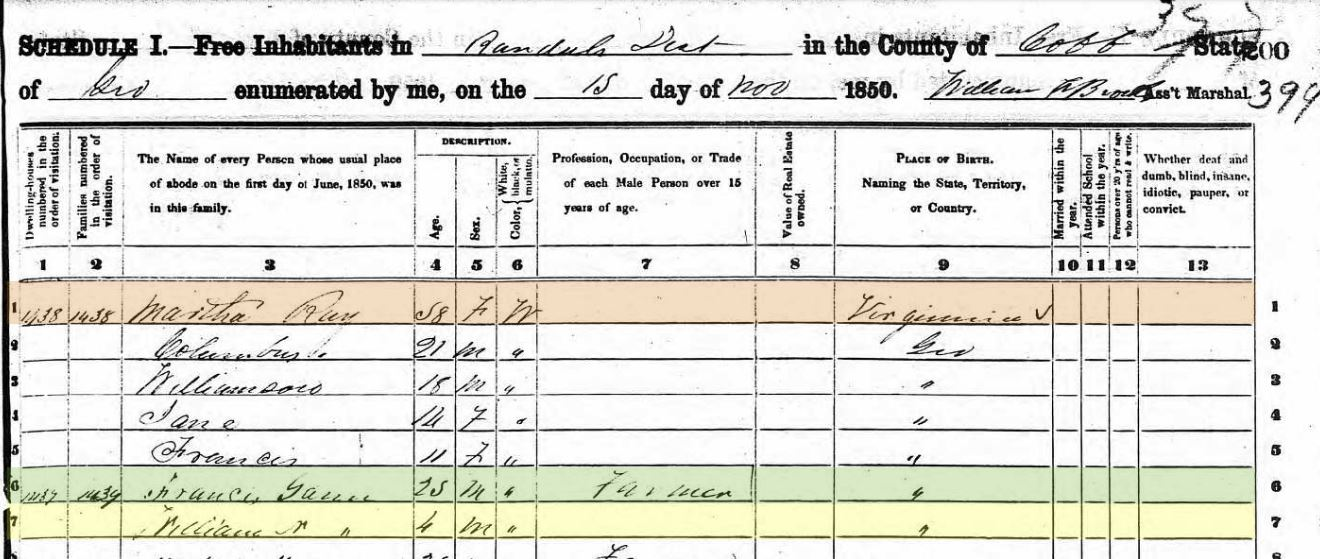 SCHEDULE I.—Free Inhabitants in Randals Dist in the County of Cobb State 200
of Geo enumerated by me, on the 15 day of Nov 1850. William Ass't Marshal 399
Dwelling-houses numbered in the order of visitation.
Families numbered in the order of visitation.
The Name of every Person whose usual place
of abode on the first day of June, 1850, was
in this family.
DESCRIPTION.
Age.
Sex.
Color, { White, black, or mulatto.
Profession, Occupation, or Trade
of each Male Person over 15
years of age.
Value of Real Estate owned.
PLACE OF BIRTH.
Naming the State, Territory,
or Country.
Married within the year.
Attended School within the year.
Persons over 20 y'rs of age who cannot read & write.
Whether deaf and
dumb, blind, insane,
idiotic, pauper, or
convict.
1 2 3 4 5 6 7 8 9 10 11 12 13
1 1438 1438 Martha Ray 58 F W Virginnia 1
2 Columbus 21 M " Geo 2
3 Williamson 18 M " " 3
4 Jane 14 F " " 4
5 Francis 11 F " " 5
6 1439 1439 Francis Gann 25 M " Farmer " 6
7 William N " 4 M " " 7
8